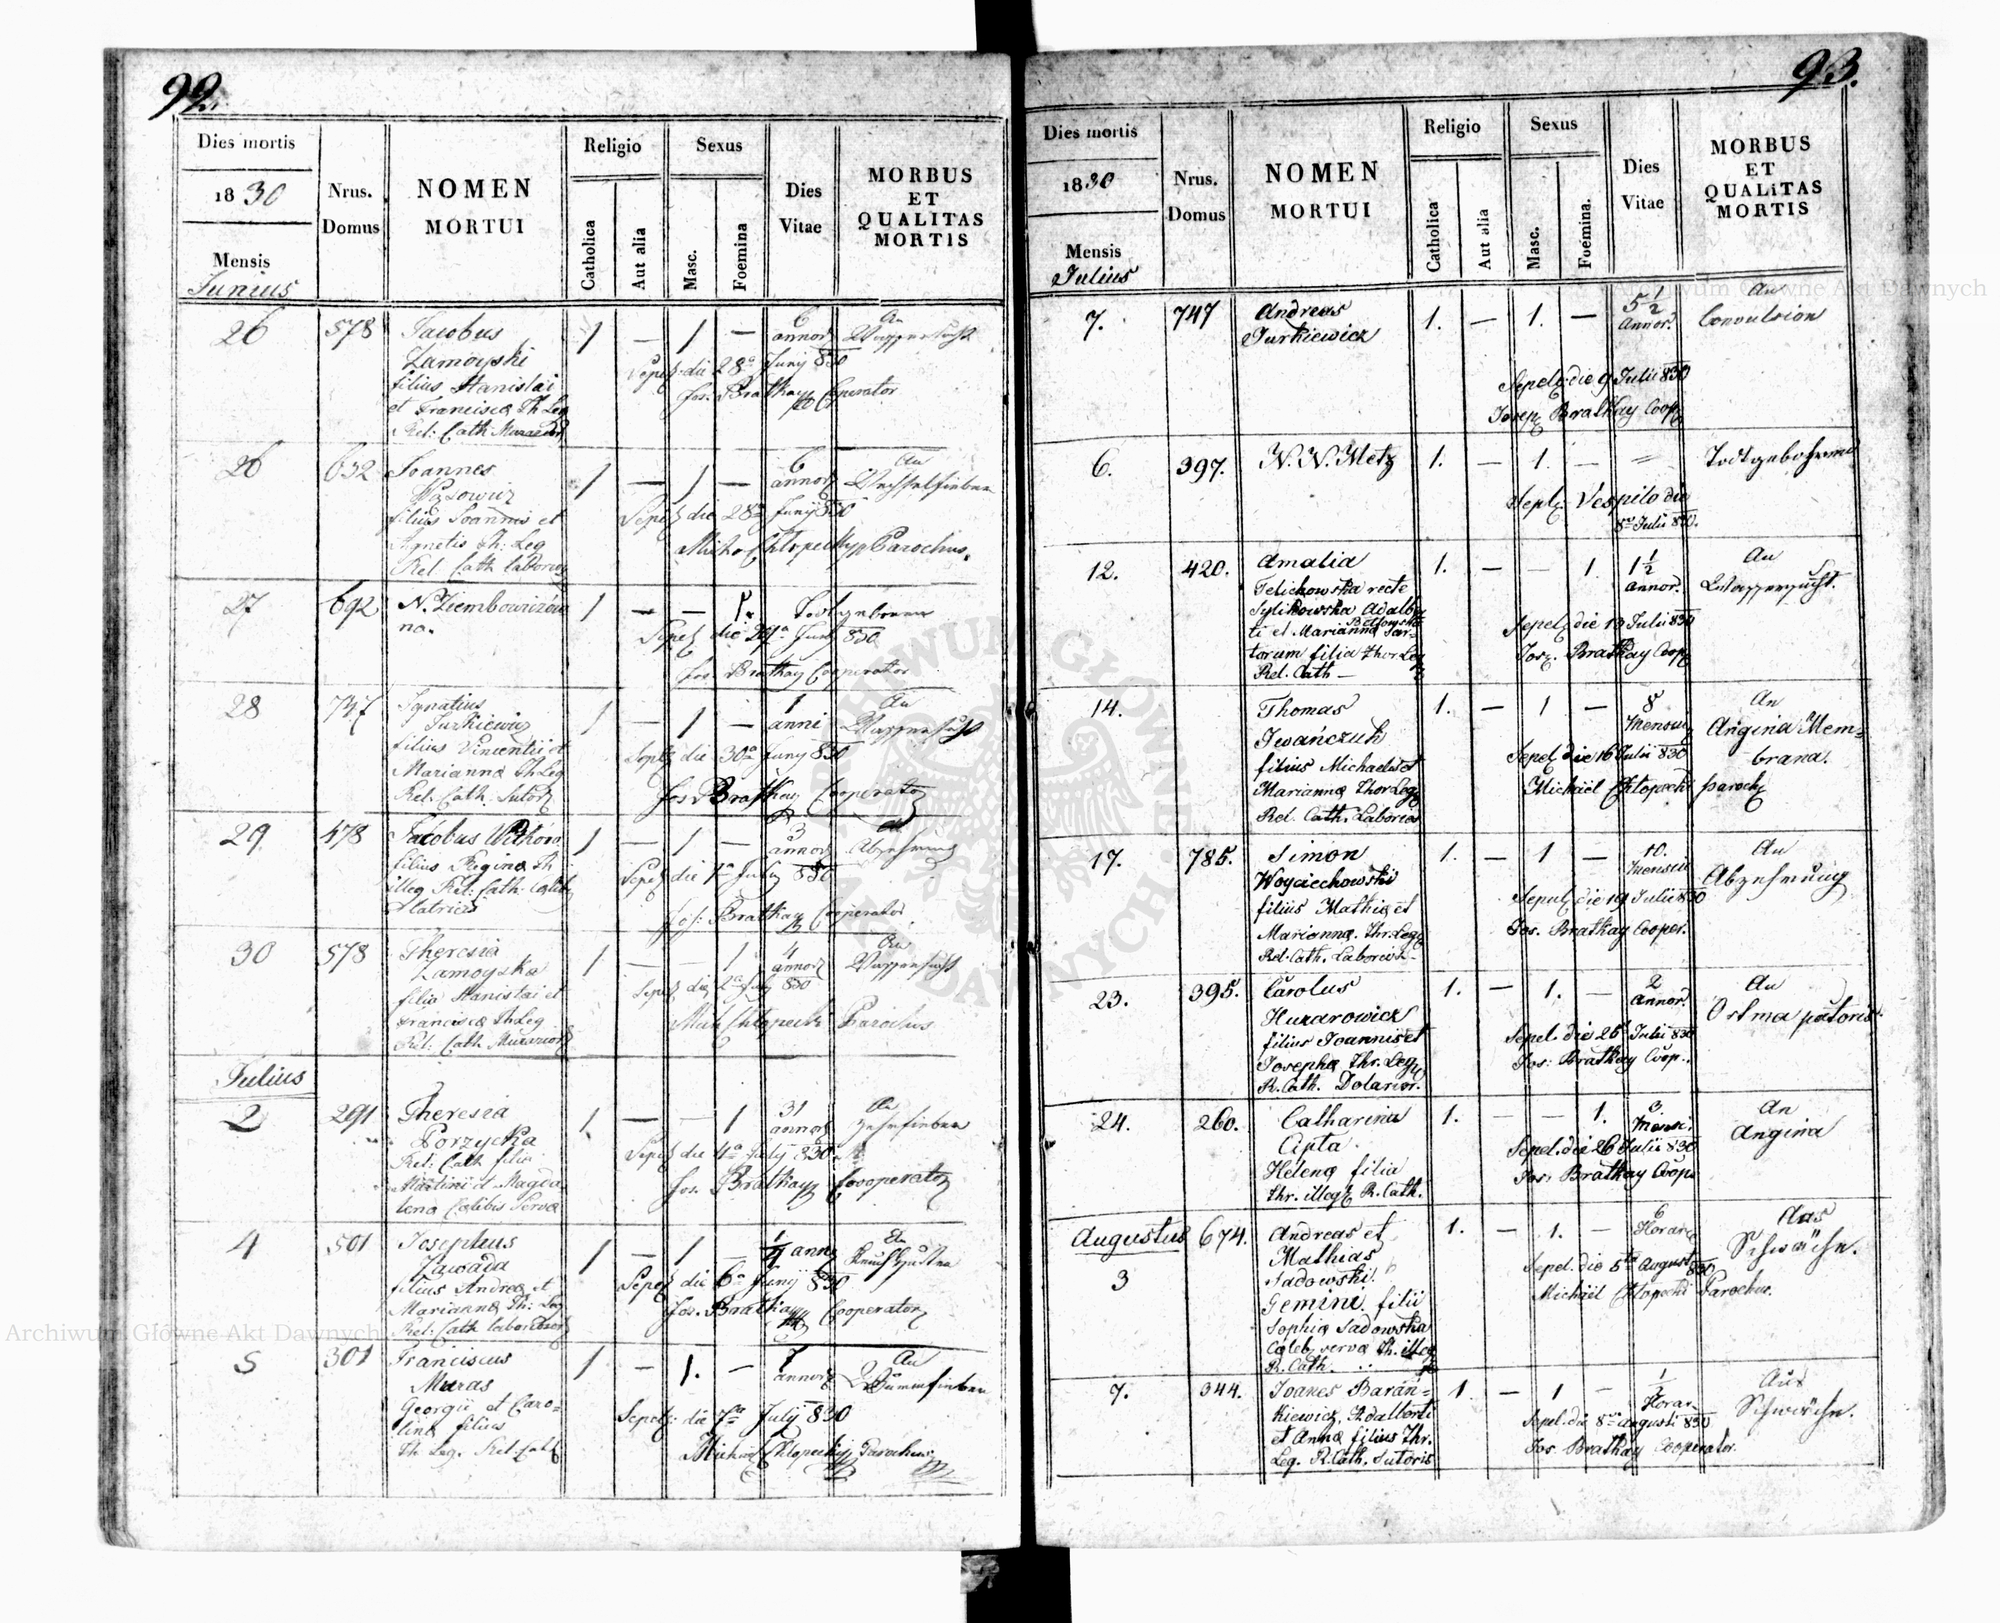 92.
Dies mortis
1830
Mensis
Junius
Nrus.
Domus
NOMEN
MORTUI
Religio
Catholica
Aut alia
Sexus
Masc.
Foemina
Dies
Vitae
MORBUS
ET
QUALITAS
MORTIS
26 578 Jacobus 1 — 1 — 6 An
Zamoyski annor Wassersucht
filius Stanislai Sepel die 28a Junij 830
et Francisca Th Leg Jos. Brathay Cooperator
Rel: Cath
26 632 Joannes 1 — 1 — 6 An
annor Wechselfieber
filius Joannis et Sepel die 28a Junij 830
Agnetis Th: Leg Parochus
Rel Cath labor
27 692 N. Ziembowiczów 1 — — 1. Todtgeboren
na. Sepel die 29a Junij 830
Jos. Brathay Cooperator
28 747 Ignatius 1 — 1 — 1 An
Jurkiewicz anni Wassersucht
filius Vincentii et Sept die 30a Junij 830
Marianna Th Leg
Rel: Cath. Sutor Jos Brathay Cooperator
29 478 Jacobus 1 — 1 — 3 An
filius Regina Th annor Abzehrung
illeg Rel: Cath: Sepel die 1a July 830
Matrices Jos: Brathay Cooperator
30 578 Theresia 1 — — 1 4 An
Zamoyska annor Wassersucht
filia Stanislai et Sepel die 2a July 830
Francisca Th Leg Mich Chlopecki Parochus
Rel: Cath
Julius
2 291 Theresia 1 — — 1 31 An
Porzycka annor Zehrfieber
Rel: Cath filia Sepel die 4a July 830
Martini et Magda Jos. Brathay Cooperator
lena Cælibis Serva
4 501 Josephus 1 — 1 — An
Zawada Keuchhusten
filius Andrea et Sepel die 6a Junij 830
Marianna Th: Leg Jos. Brathay Cooperator
Rel: Cath
5 301 Franciscus 1 — 1. — 7 An
Muras annor
Georgii et Caro-
lina filius Sepel: die 7ma July 830
Th Leg. Rel: Cath Michael Chlopecki Parochus
93.
Dies mortis
1830
Mensis
Julius
Nrus.
Domus
NOMEN
MORTUI
Religio
Catholica
Aut alia
Sexus
Masc.
Foemina.
Dies
Vitae
MORBUS
ET
QUALITAS
MORTIS
7. 747 Andreas 1. — 1. — 5 1/2 An
Jurkiewicz Annor. Convulsion
Sepel: die 9 Julii 830
Josep Brathay Coop
6. 397. N. N. Metz 1. — 1. — Todtgebohrene
Sepl: Vespilo die
8va Julii 830.
12. 420. Amalia 1. — — 1 1 1/2 An
Telichowska recte Annor. Wassersucht.
Sylikowska Adalber
ti et Marianna Sar- Sepel: die 13 Julii 830
torum filia Thor Leg Jos. Brathay Coop
Rel. Cath —
14. Thomas 1. — 1 — 8 An
Iwańczuk Mensiu Angina Mem-
filius Michaelis et Sepel die 16 Julii 830 brana.
Marianna Thor Leg Michäel Chlopecki paroch
Rel. Cath. Laborios
17. 785. Simon 1. — 1 — 10. An
Woyciechowski Mensiu Abzehrung
filius Mathia et Sepul die 19 Julii 830
Marianna. Thr. Leg Jos. Brathay Cooper.
Rel. Cath. Laborios
23. 395. Carolus 1. — 1. — 2 An
Huzarowicz Annor. Ostma pectoris.
filius Joannis et Sepel. die 26 Julii 830
Josepha Thr. Leg Jos: Brathay Coop..
R. Cath. Dolarior.
24. 260. Catharina 1. — — 1. 3. An
Cipta Mensi. Angina
Helena filia Sepel. die 26 Julii 830
Thr. illeg R. Cath. Jos: Brathay Coop
Augustus
3 674. Andreas et 1. — 1. — 6 Aus
Mathias Horar. Schwäche.
Sadowski. Sepel. die 5ta August 830
Gemini. filii Michäil Chlopecki Parochus.
Sophia Sadowska
Cæleb. serva Th. illeg
R. Cath.
7. 344. Joanes Barań- 1. — 1 — 1/2 Aus
kiewicz, Adalberti Horar Schwäche.
et Anna filius Thr. Sepel. die 8va augusti 830
Leg. R. Cath. Sutoris Jos. Brathay Cooperator.
ARCHIWUM GŁÓWNE AKT DAWNYCH
Archiwum Główne Akt Dawnych
Archiwum Główne Akt Dawnych